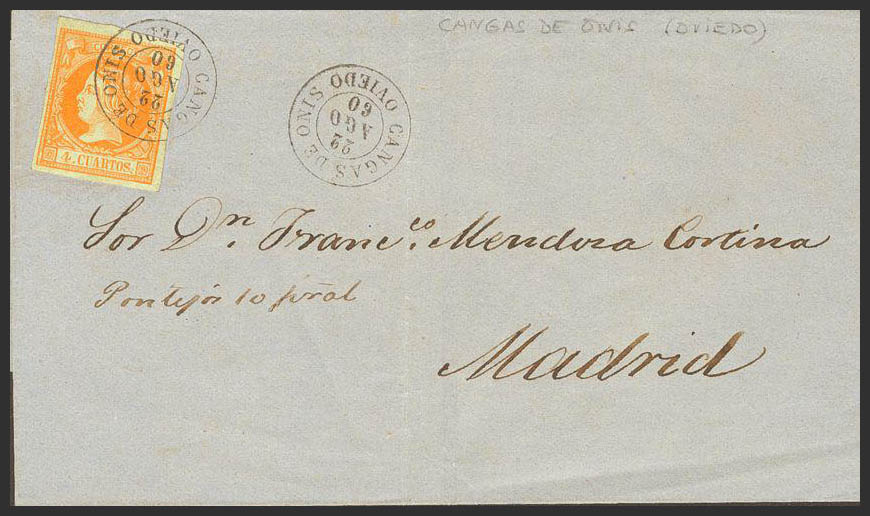 CANGAS DE ONIS (OVIEDO)
CANGAS DE ONIS OVIEDO
22
AGO
60
4. CUARTOS.
CANGAS DE ONIS OVIEDO
22
AGO
60
Sor Dn. Franco. Mendoza Cortina
Pontejos 10 pral
Madrid